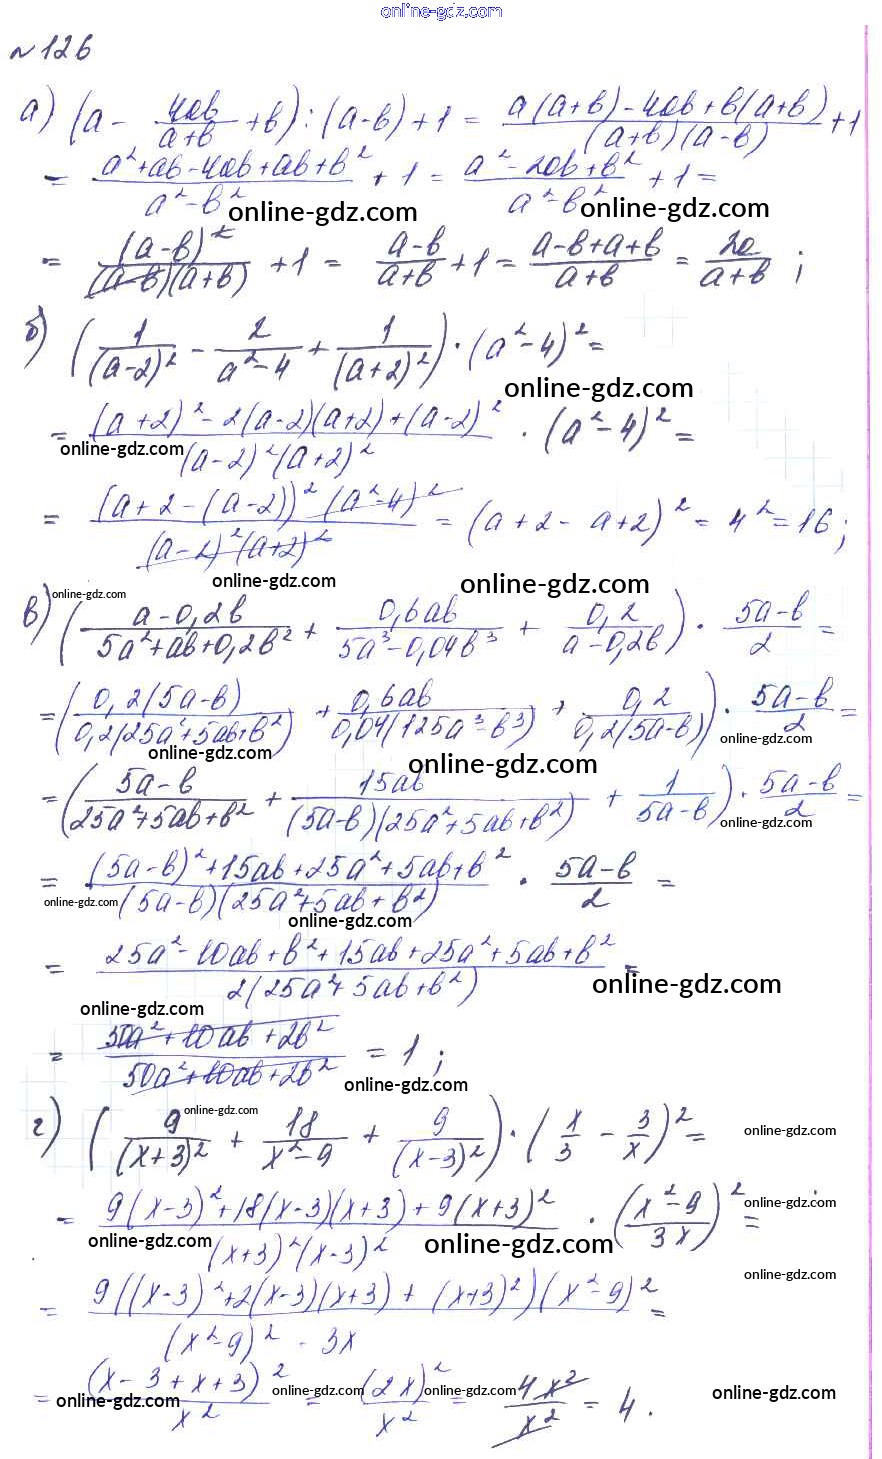 online-gdz.com
№126
а) (a - 4ab/(a+b) + b) : (a-b) + 1 = (a(a+b) - 4ab + b(a+b))/((a+b)(a-b)) + 1
= (a²+ab-4ab+ab+b²)/(a²-b²) + 1 = (a²-2ab+b²)/(a²-b²) + 1 =
online-gdz.com online-gdz.com
= (a-b)²/((a-b)(a+b)) + 1 = (a-b)/(a+b) + 1 = (a-b+a+b)/(a+b) = 2a/(a+b) ;
б) (1/(a-2)² - 2/(a²-4) + 1/(a+2)²) · (a²-4)² =
online-gdz.com
= ((a+2)² - 2(a-2)(a+2) + (a-2)²)/((a-2)²(a+2)²) · (a²-4)² =
online-gdz.com
= ((a+2-(a-2))² (a²-4)²)/((a-2)²(a+2)²) = (a+2-a+2)² = 4² = 16 ;
online-gdz.com online-gdz.com
online-gdz.com
в) ((a-0,2b)/(5a²+ab+0,2b²) + 0,6ab/(5a³-0,04b³) + 0,2/(a-0,2b)) · (5a-b)/2 =
= (0,2(5a-b)/(0,2(25a²+5ab+b²)) + 0,6ab/(0,04(125a³-b³)) + 0,2/(0,2(5a-b))) · (5a-b)/2 =
online-gdz.com online-gdz.com online-gdz.com
= ((5a-b)/(25a²+5ab+b²) + 15ab/((5a-b)(25a²+5ab+b²)) + 1/(5a-b)) · (5a-b)/2 =
online-gdz.com
= ((5a-b)²+15ab+25a²+5ab+b²)/((5a-b)(25a²+5ab+b²)) · (5a-b)/2 =
online-gdz.com online-gdz.com
= (25a²-10ab+b²+15ab+25a²+5ab+b²)/(2(25a²+5ab+b²)) =
online-gdz.com online-gdz.com
= (50a²+10ab+2b²)/(50a²+10ab+2b²) = 1 ;
online-gdz.com
online-gdz.com
г) (9/(x+3)² + 18/(x²-9) + 9/(x-3)²) · (x/3 - 3/x)² =
online-gdz.com
= (9(x-3)²+18(x-3)(x+3)+9(x+3)²)/((x+3)²(x-3)²) · ((x²-9)/3x)² =
online-gdz.com online-gdz.com online-gdz.com
online-gdz.com
= (9((x-3)²+2(x-3)(x+3)+(x+3)²)(x²-9)²)/((x²-9)² · 3x) =
= (x-3+x+3)²/x² = (2x)²/x² = 4x²/x² = 4.
online-gdz.com online-gdz.com online-gdz.com online-gdz.com